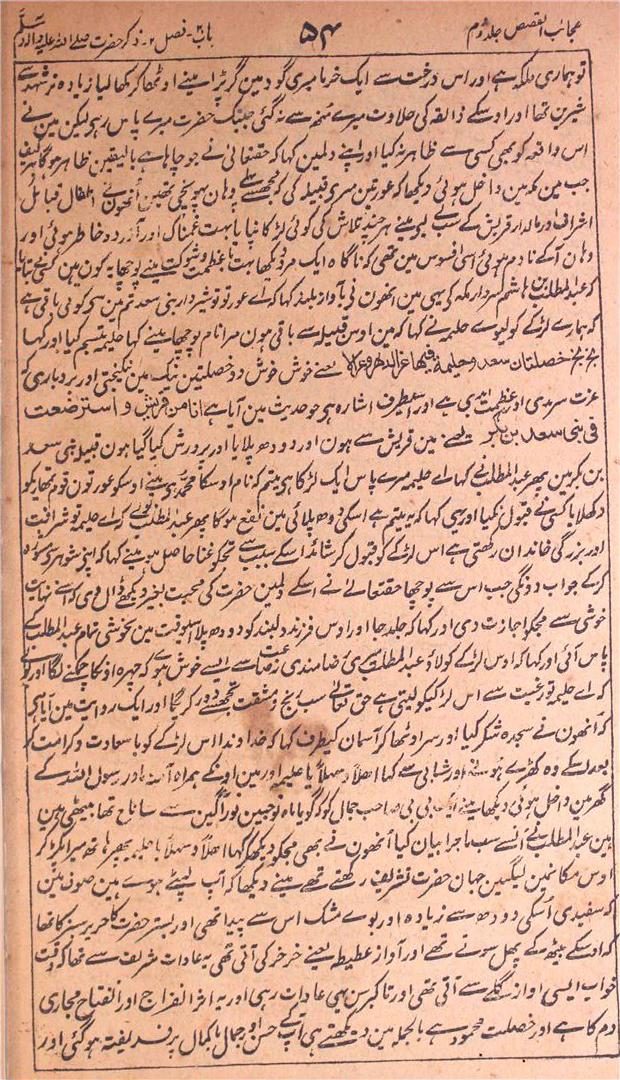 عجائب القصص جلد دوم ۵۴ باب ۲ فصل ۲ ذکر حضرت صلے اللہ علیہ وآلہ وسلم
تو ہماری ملکہ ہے اور اس درخت سے ایک خرما میری گود مین گر پڑا مینے اوٹھا کر کھا لیا زیادہ تر شہد سے
شیرین تھا اور اوسکے ذائقہ کی حلاوت میرے منھ سے نہ گئی جبتک حضرت میرے پاس رہے لیکن مین نے
اس واقعہ کو بھی کسی سے ظاہر نہ کیا اور اپنے دلمین کہا کہ حقتعالیٰ نے جو چاہا ہے بالیقین ظاہر ہوگا ہر کیف
جب مین مکہ مین داخل ہوئی دیکھا کہ عورتین میری قبیلہ کی مجھسے پہلے وہان پہونچی تھین اُنھون نے اطفال قبائل
اشراف اور مالدار قریش کے سب لیے مینے ہر چند تلاش کی کوئی لڑکا نپایا بہت غمناک اور آزردہ خاطر ہوئی اور
وہان آکے نادم ہوئی اسی افسوس مین تھی کہ ناگاہ ایک مرد کو دیکھا بہت باعظمت وشوکت مینے پوچھا یہ کون ہین کسی نے بتایا
کہ عبدالمطلب بن ہاشم سردار مکہ کی یہی ہین انھون نے بآواز بلند کہا کہ اے عورتو شیردار بنی سعد تم مین سے کوئی باقی ہے
کہ ہمارے لڑکے کو لیوے حلیمہ نے کہا کہ مین اوس قبیلہ سے باقی ہون میرا نام پوچھا مینے کہا حلیمہ تبسم کیا اور کہا
بخ بخ خصلتان سعد وحلیمة فیھا عز الدھر وعز الابد یعنے خوش خوش دو خصلتین نیک ہین نیکبختی اور بردباری کہ
عزت سرمدی اور عظمت ابدی ہے اور اسیطرف اشارہ ہے جو حدیث مین آیا ہے انا من قریش واسترضعت
فی بنی سعد بن بکر یعنے مین قریش سے ہون اور دودھ پلایا اور پرورش کیا گیا ہون قبیلہ بنی سعد
بن بکر مین پھر عبدالمطلب نے کہا اے حلیمہ میرے پاس ایک لڑکا ہے یتیم کہ نام اوسکا محمد ہے مینے اوسکو عورتون قوم تمھاری کو
دکھلایا کسی نے قبول نکیا اور یہی کہا کہ یہ یتیم ہے اسکی دودھ پلائی مین نفع نہوگا پھر عبدالمطلب بولے کہ اے حلیمہ تو شرافت
اور بزرگی خاندان رکھتی ہے اس لڑکے کو قبول کر شاید اسکے سبب سے تجکو غنا حاصل ہو مینے کہا کہ اپنے شوہر سے مشورہ
کر کے جواب دونگی جب اس سے پوچھا حقتعالے نے اسکے دلمین حضرت کی محبت بغیر دیکھے ڈال دی کہ اسنے نہایت
خوشی سے مجکو اجازت دی اور کہا کہ جلد جا اور اوس فرزند دلبند کو دودھ پلا اسیوقت مین بخوشی تمام عبدالمطلب کے
پاس آئی اور کہا کہ اوس لڑکے کو لاؤ عبدالمطلب میری رضامندی رغبت سے ایسے خوش ہوئے کہ چہرہ اونکا چمکنے لگا اور بولے
کہ اے حلیمہ تو رغبت سے اس لڑکیکو لیتی ہے حق تعالیٰ سب رنج ومشقت تجھسے دور کرے گا اور ایک روایت مین آیا ہے
کہ انھون نے سجدہ شکر کیا اور سر اوٹھا کر آسمان کیطرف کہا کہ خداوندا اس لڑکے کو با سعادت وکرامت کر
بعد اسکے وہ کھڑے ہوئے اور شتابی سے کہا اھلاً وسھلاً یا حلیمہ اور مین اونکے ہمراہ آمنہ اور رسول اللہ کے
گھر مین داخل ہوئی دیکھا مینے ایک بی بی صاحب جمال کو کہ گویا ماہ نو جبین نور آگین سے سانح تھا بیٹھی ہین
عبدالمطلب نے اُنسے سب ماجرا بیان کیا اُنھون نے بھی مجکو دیکھکر کہا اھلاً وسھلاً یا حلیمہ پھر ہاتھ میرا پکڑ کر
اوس مکانمین لیگئین جہان حضرت تشریف رکھتے تھے مینے دیکھا کہ آپ لپٹے ہوے ہین صوف مین
کہ سفیدی اُسکی دودھ سے زیادہ اور بوے مشک اس سے پیدا تھی اور بستر حضرت کا حریر سبز کا تھا
کہ اوسکے پیٹھ کے بھل سوتے تھے اور آواز غطیطہ یعنے خرخر کی آتی تھی یہ عادات شریف سے تھا کہ وقت
خواب ایسی آواز گلے سے آتی تھی اور تا کبر سن یہی عادات رہی اور یہ اثر انفراج اور انفتاح مجاری
دم کا ہے اور خصلت محمود ہے بالجملہ مین دیکھتے ہی آپ کے حسن وجمال باکمال پر فریفتہ ہوگئی اور